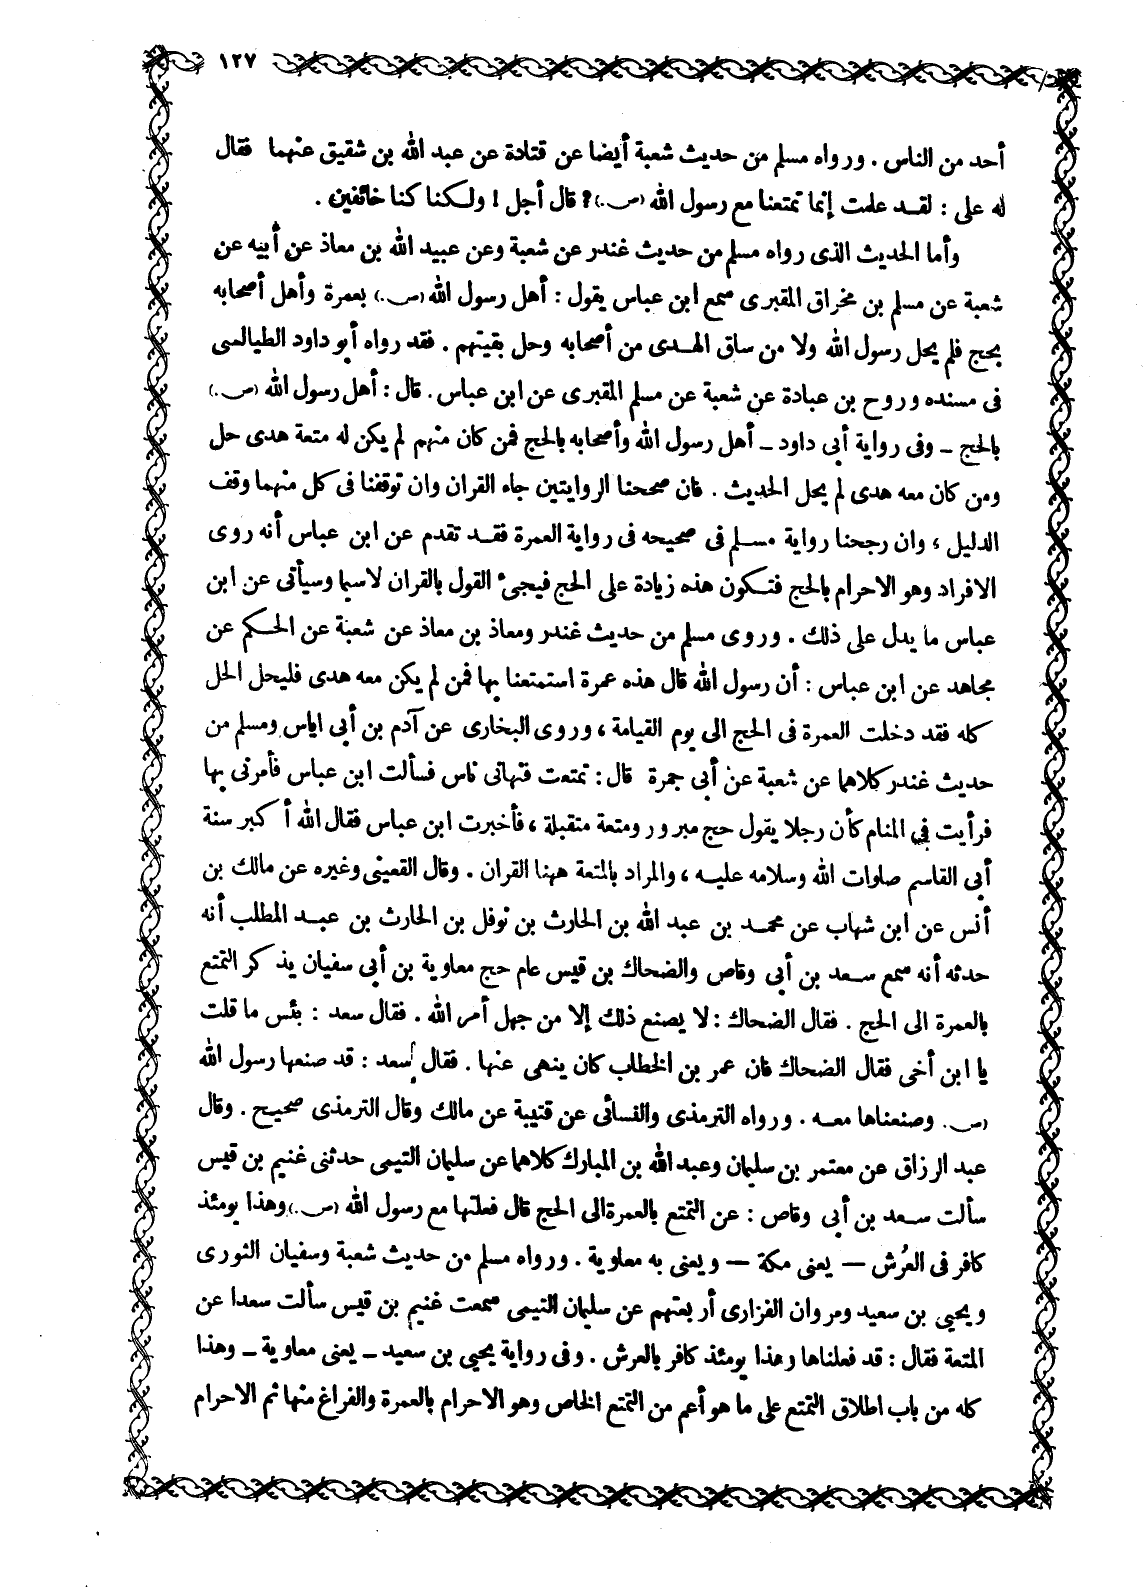 ١٢٧
أحد من الناس . ورواه مسلم من حديث شعبة أيضا عن قتادة عن عبد الله بن شقيق عنهما فقال
له على : لقد علمت إنما تمتعنا مع رسول الله (ص.)؟ قال أجل ! ولكنا كنا خائفين .
وأما الحديث الذى رواه مسلم من حديث غندر عن شعبة وعن عبيد الله بن معاذ عن أبيه عن
شعبة عن مسلم بن مخراق المقبرى سمع ابن عباس يقول : أهل رسول الله (ص.) بعمرة وأهل أصحابه
بحج فلم يحل رسول الله ولا من ساق الهدى من أصحابه وحل بقيتهم . فقد رواه أبو داود الطيالسى
فى مسنده وروح بن عبادة عن شعبة عن مسلم المقبرى عن ابن عباس . قال : أهل رسول الله (ص.)
بالحج ــ وفى رواية أبى داود ــ أهل رسول الله وأصحابه بالحج فمن كان منهم لم يكن له متعة هدى حل
ومن كان معه هدى لم يحل الحديث . فان صححنا الروايتين جاء القران وان توقفنا فى كل منهما وقف
الدليل ، وان رجحنا رواية مسلم فى صحيحه فى رواية العمرة فقد تقدم عن ابن عباس أنه روى
الافراد وهو الاحرام بالحج فتكون هذه زيادة على الحج فيجىء القول بالقران لاسيما وسيأتى عن ابن
عباس ما يدل على ذلك . وروى مسلم من حديث غندر ومعاذ بن معاذ عن شعبة عن الحكم عن
مجاهد عن ابن عباس : أن رسول الله قال هذه عمرة استمتعنا بها فمن لم يكن معه هدى فليحل الحل
كله فقد دخلت العمرة فى الحج الى يوم القيامة ، وروى البخارى عن آدم بن أبى اياس ومسلم من
حديث غندر كلاهما عن شعبة عن أبى جمرة قال : تمتعت فنهانى ناس فسألت ابن عباس فأمرنى بها
فرأيت في المنام كأن رجلا يقول حج مبرور ومتعة متقبلة ، فأخبرت ابن عباس فقال الله أكبر سنة
أبى القاسم صلوات الله وسلامه عليه ، والمراد بالمتعة ههنا القران . وقال القعينى وغيره عن مالك بن
أنس عن ابن شهاب عن محمد بن عبد الله بن الحارث بن نوفل بن الحارث بن عبد المطلب أنه
حدثه أنه سمع سعد بن أبى وقاص والضحاك بن قيس عام حج معاوية بن أبي سفيان يذكر التمتع
بالعمرة الى الحج . فقال الضحاك : لا يصنع ذلك إلا من جهل أمر الله . فقال سعد : بئس ما قلت
يا ابن أخى فقال الضحاك فان عمر بن الخطاب كان ينهى عنها . فقال سعد : قد صنعها رسول الله
(ص. وصنعناها معه . ورواه الترمذى والنسائى عن قتيبة عن مالك وقال الترمذى صحيح . وقال
عبد الرزاق عن معتمر بن سليمان وعبد الله بن المبارك كلاهما عن سليمان التيمى حدثنى غنيم بن قيس
سألت سعد بن أبى وقاص : عن التمتع بالعمرة الى الحج قال فعلتها مع رسول الله (ص.) وهذا يومئذ
كافر فى العُرش — يعنى مكة — ويعنى به معاوية . ورواه مسلم من حديث شعبة وسفيان الثورى
ويحيى بن سعيد ومروان الفزارى أربعتهم عن سليمان التيمى سمعت غنيم بن قيس سألت سعدا عن
المتعة فقال : قد فعلناها وهذا يومئذ كافر بالعرش . وفى رواية يحيى بن سعيد ــ يعنى معاوية ــ وهذا
كله من باب اطلاق التمتع على ما هو أعم من التمتع الخاص وهو الاحرام بالعمرة والفراغ منها ثم الاحرام